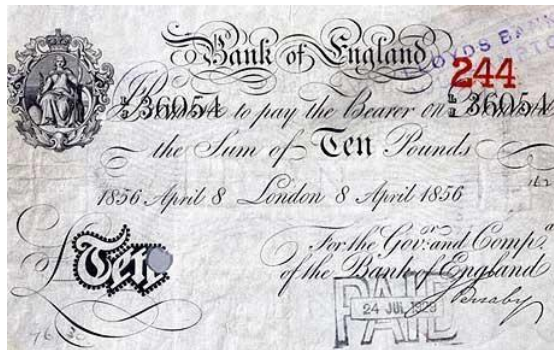 Bank of England
LLOYDS BANK
244
36054 to pay the Bearer on 36054
the Sum of Ten Pounds
1856 April 8 London 8 April 1856
For the Govr. and Compa.
of the Bank of England
£Ten
PAID
24 JUL 1923